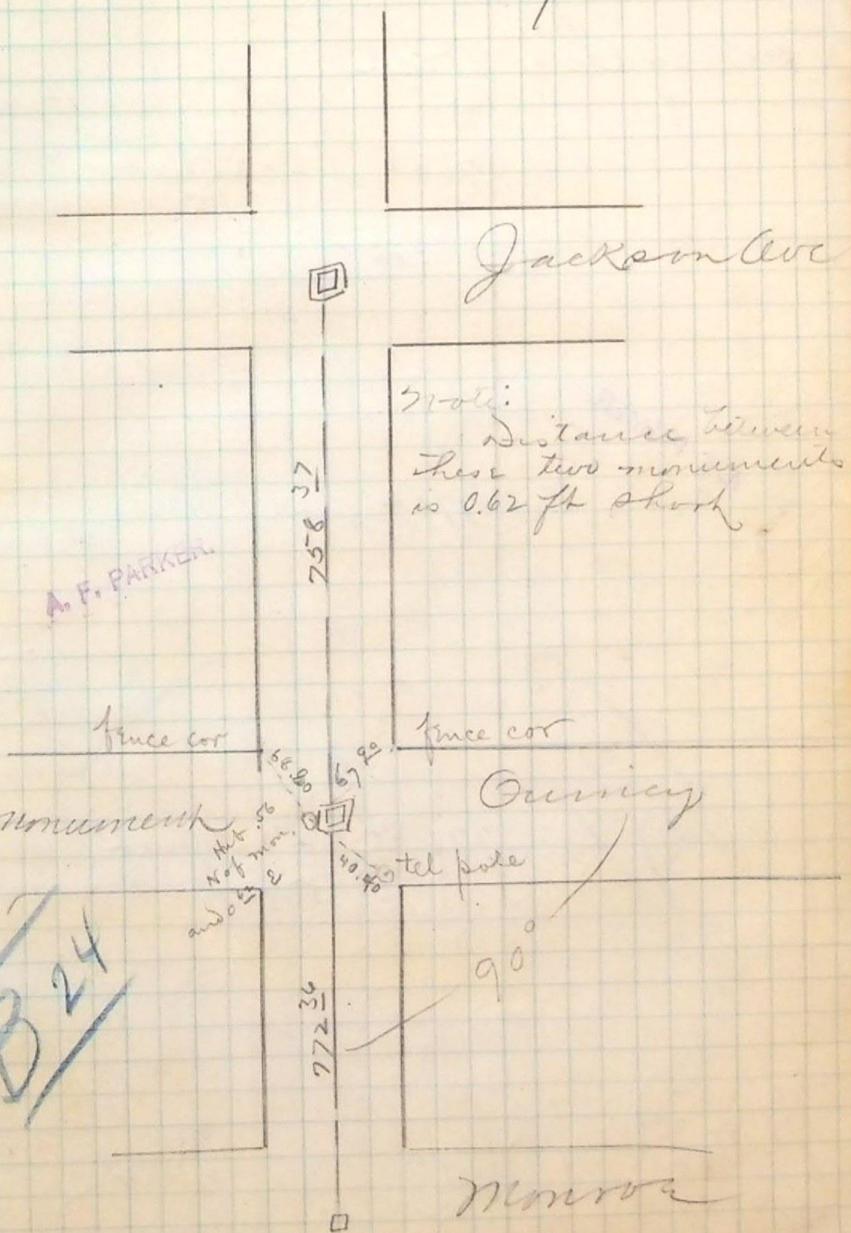 Jackson Ave
Note:
Distance between
these two monuments
is 0.62 ft short
758 37
A. F. PARKER.
fence cor
fence cor
67 90
Quincy
monument
.56
N of mon.
and 0
E
40.
tel pole
90°
B 24
772 36
Monroe